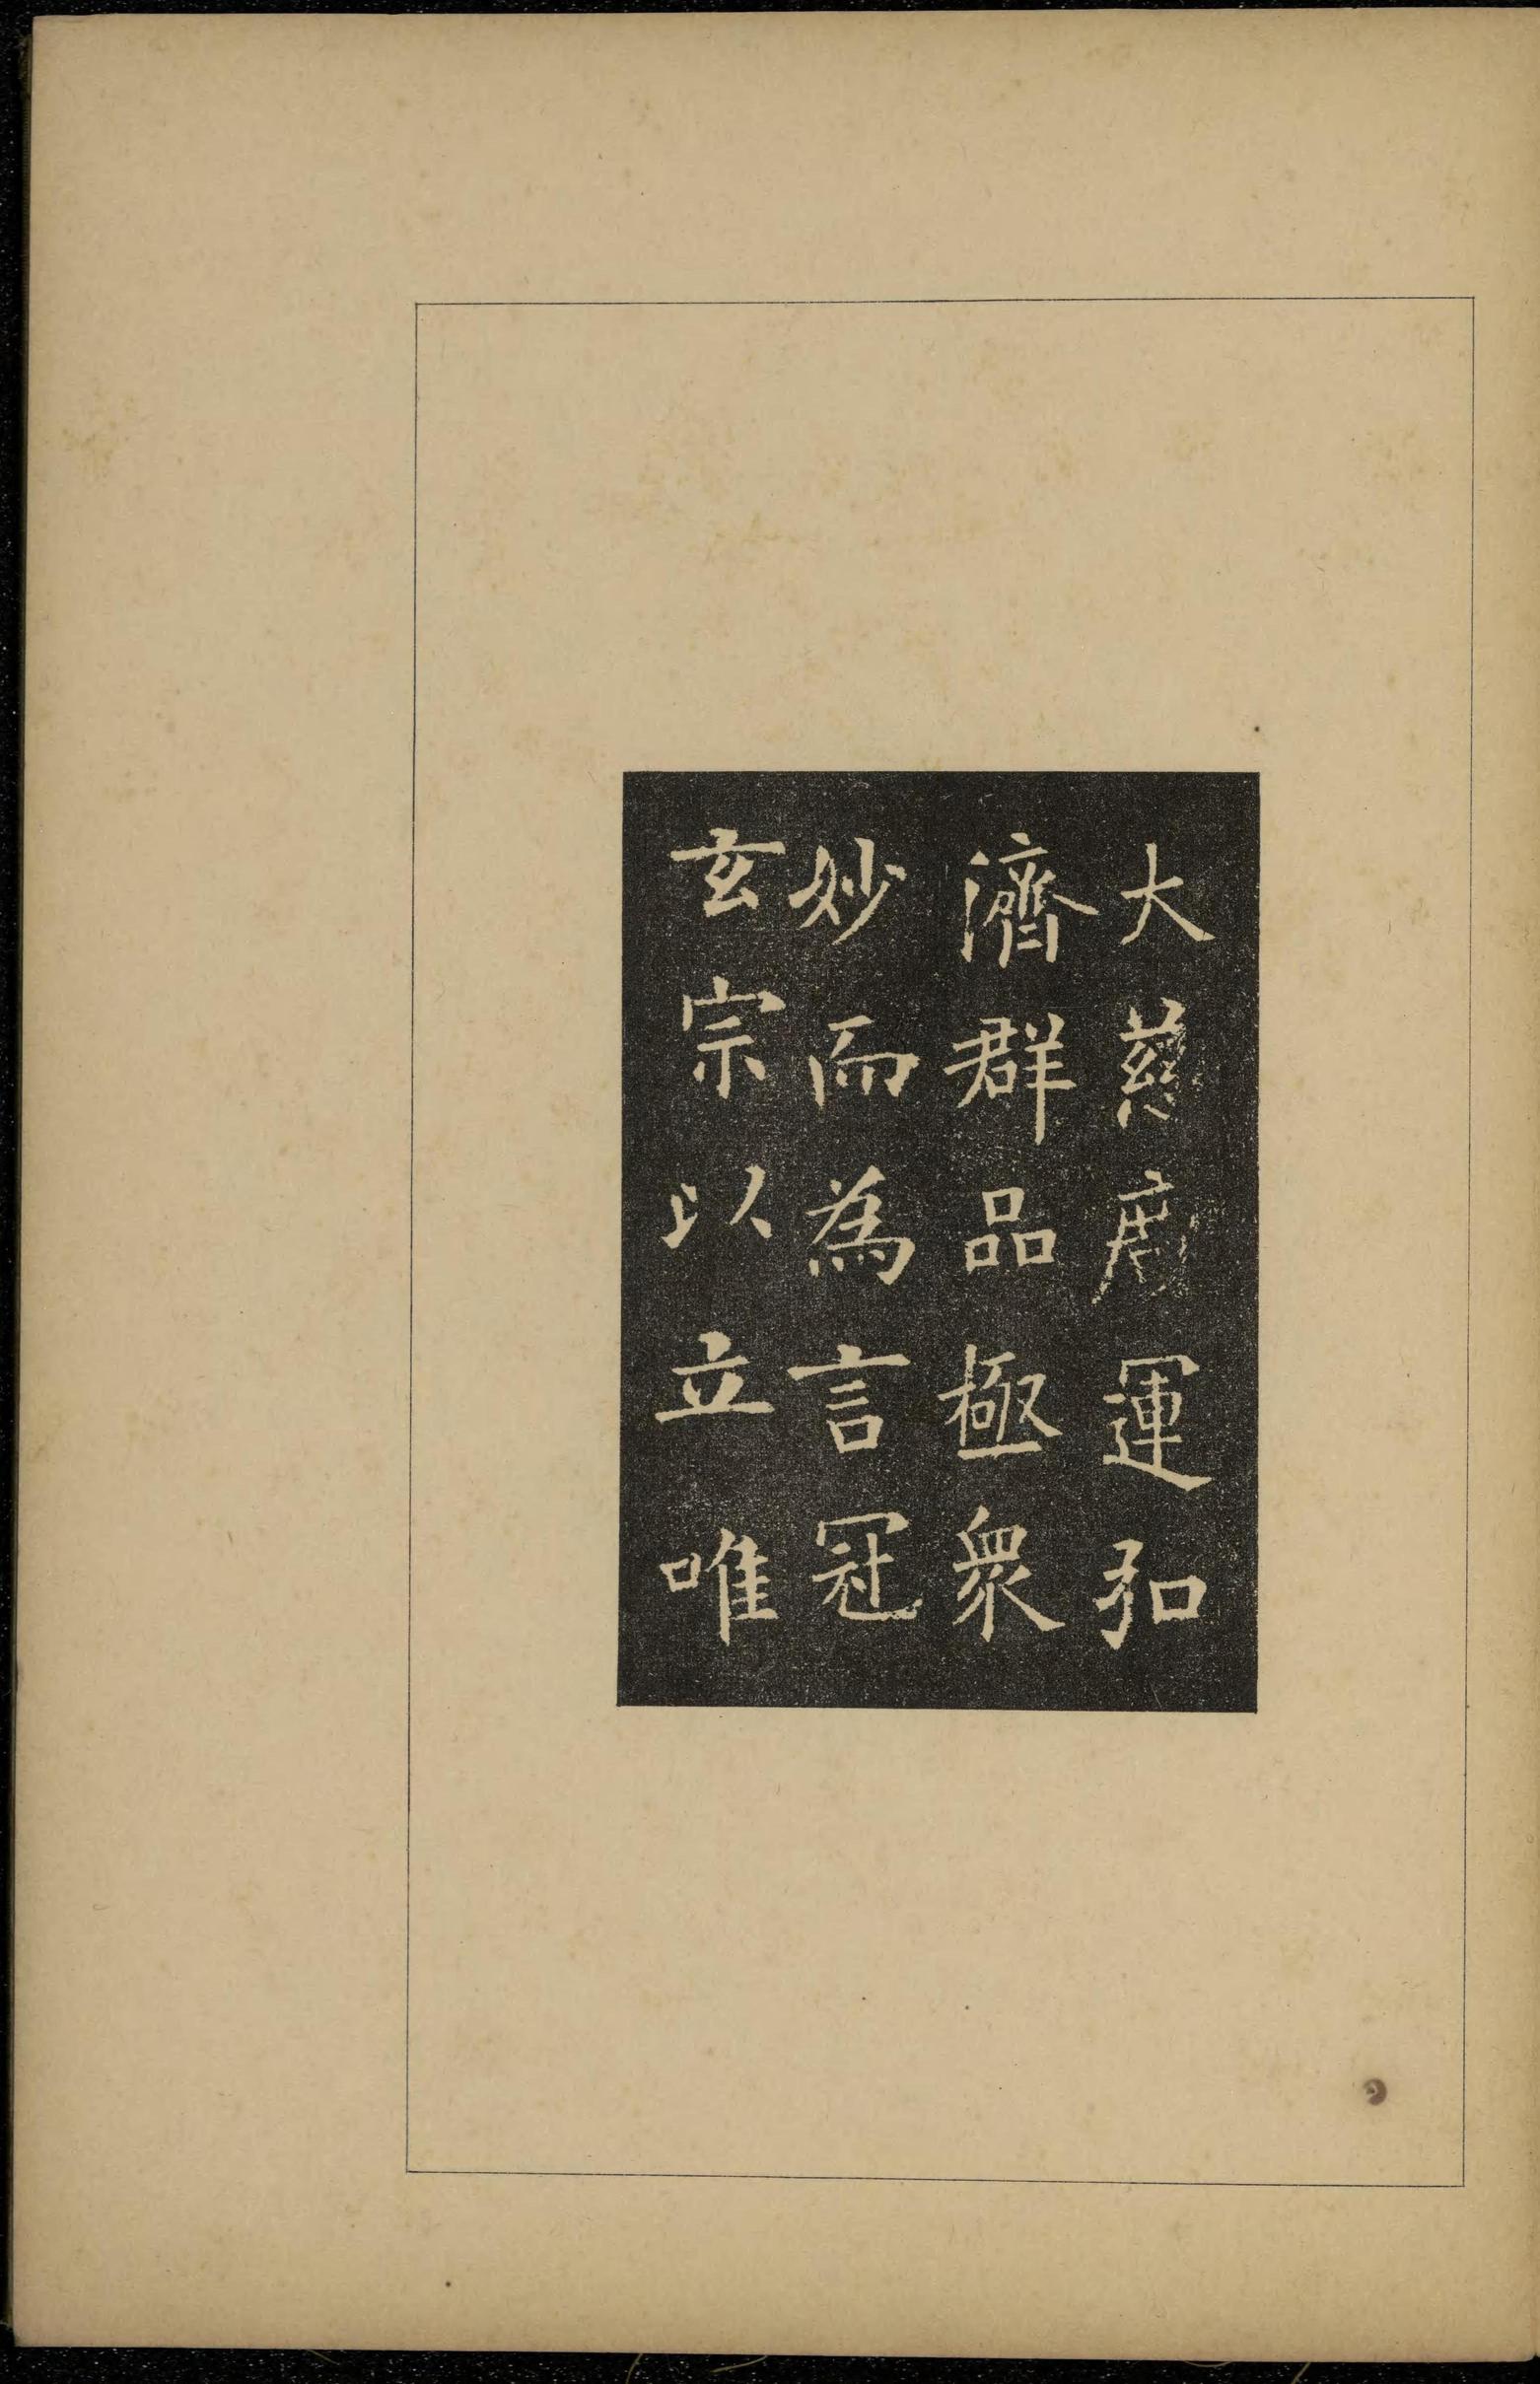 大慈度運弘
濟群品極眾
妙而為言冠
玄宗以立唯